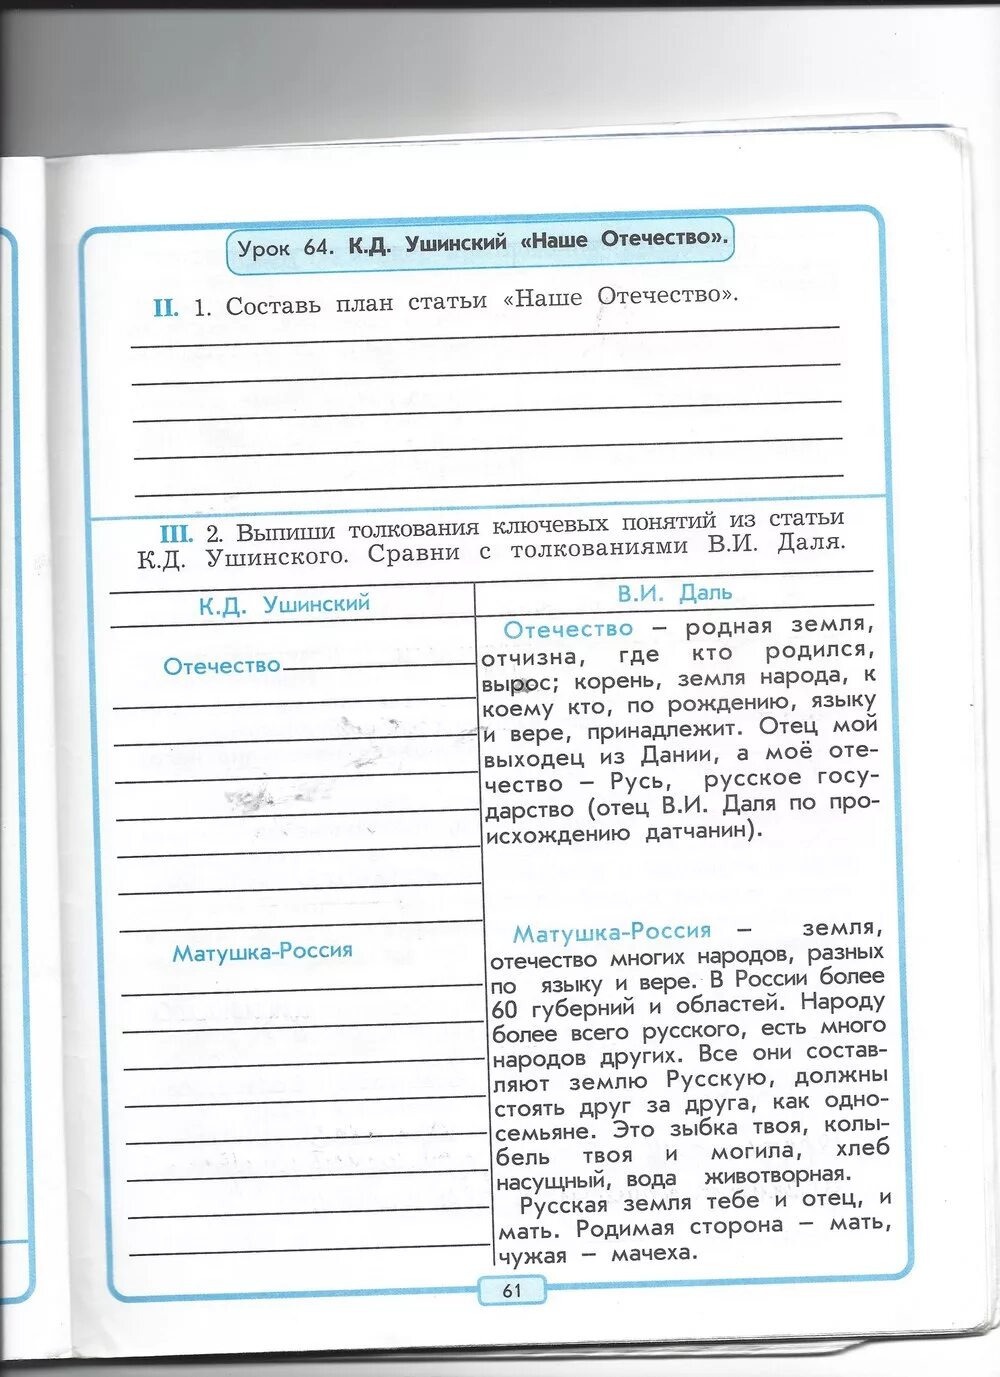 Урок 64. К.Д. Ушинский «Наше Отечество».
II. 1. Составь план статьи «Наше Отечество».
III. 2. Выпиши толкования ключевых понятий из статьи
К.Д. Ушинского. Сравни с толкованиями В.И. Даля.
К.Д. Ушинский
Отечество
Матушка-Россия
В.И. Даль
Отечество – родная земля,
отчизна, где кто родился,
вырос; корень, земля народа, к
коему кто, по рождению, языку
и вере, принадлежит. Отец мой
выходец из Дании, а моё оте-
чество – Русь, русское госу-
дарство (отец В.И. Даля по про-
исхождению датчанин).
Матушка-Россия – земля,
отечество многих народов, разных
по языку и вере. В России более
60 губерний и областей. Народу
более всего русского, есть много
народов других. Все они состав-
ляют землю Русскую, должны
стоять друг за друга, как одно-
семьяне. Это зыбка твоя, колы-
бель твоя и могила, хлеб
насущный, вода животворная.
Русская земля тебе и отец, и
мать. Родимая сторона – мать,
чужая – мачеха.
61